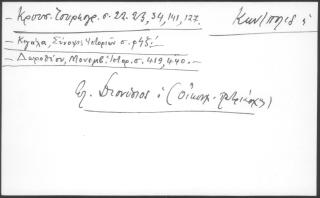 – Κρουσ. Τουρκογρ. σ. 22. 23, 34, 141, 127.
Κων/πολις
– Κιγάλα, Σύνοψις Ἱστοριῶν σ. 
– Δωροθέου, Μονεμβ. Ἱστορ. σ. 419, 440. –
Διονύσιος (Οἰκουμ. πατριάρχης)